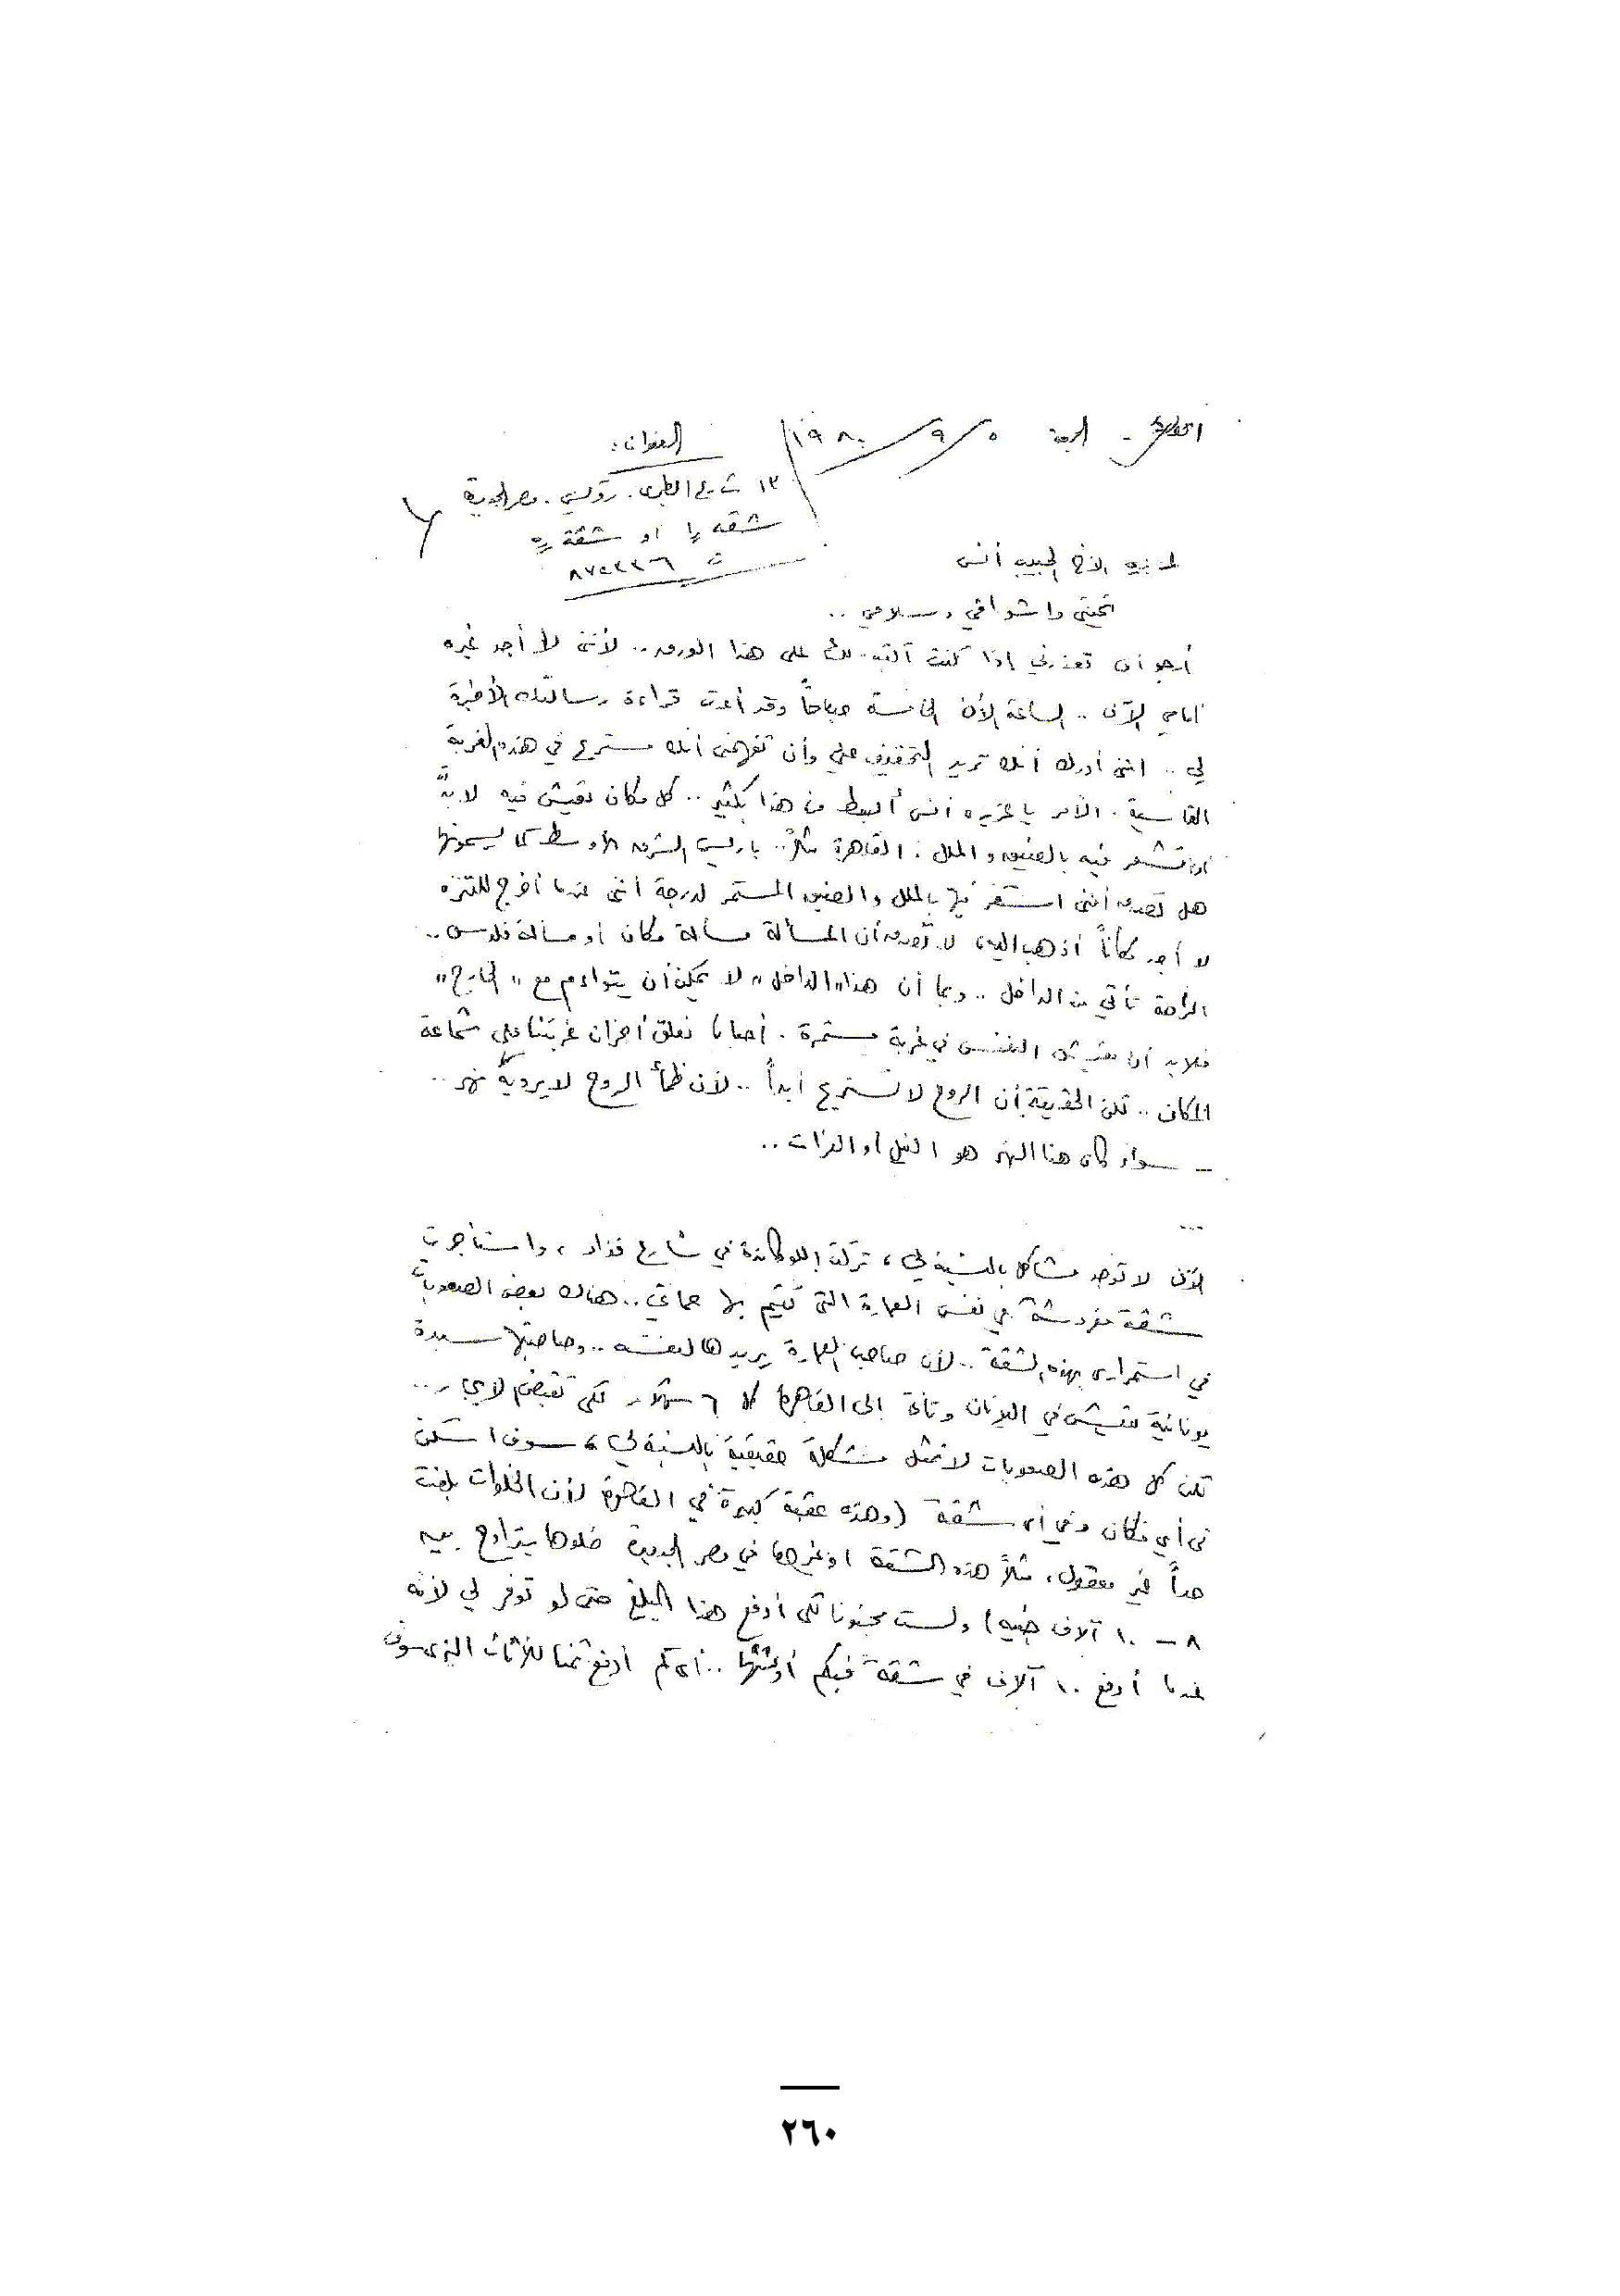 القاهرة - الجمعة ٥ / ٩ / ١٩٨٠
العنوان:
١٣ شارع الطبري. روكسي. مصر الجديدة
شقة ١ او شقة ٥
ت ٨٧٥٢٢٦
الأخ الحبيب أنس
تحيتي واشواقي وسلامي ..
أرجو أن تعذرني إذا كنت أكتب لك على هذا الورق .. لأنني لا أجد غيره
أمامي الآن .. الساعة الآن الخامسة صباحاً وقد أعدت قراءة رسالتك الأخيرة
لي .. انني أدرك أنك تريد التخفيف عني وأن تفهمني أنك مستريح في هذه الغربة
القاسية . الأمر يا عزيزي أنس أبسط من هذا بكثير .. كل مكان نعيش فيه لابدَّ
أن نشعر فيه بالضيق والملل . القاهرة مثلاً .. باريس الشرق الأوسط كما يسمونها
هل تصدق أنني أشعر فيها بالملل والضيق المستمر لدرجة أنني عندما أخرج للتنزه
لا أجد مكاناً أذهب إليه ، لا تصدق أن المسألة مسألة مكان أو مسألة فلوس ..
الراحة تأتي من الداخل .. وبما أن هذا "الداخل" لا يمكن أن يتواءم مع "الخارج"
فلابد أن تعيش النفس في غربة مستمرة . أحيانا نعلق أحزان غربتنا على شماعة
المكان .. لكن الحقيقة أن الروح لا تستريح أبداً .. لأن ظمأ الروح لا يرويه نهر ..
- سواء كان هذا النهر هو النيل أو الفرات ..
...
الآن لا توجد مشاكل بالنسبة لي ، تركت اللوكاندة في شارع فؤاد ، واستأجرت
شقة مفروشة في نفس العمارة التي تقيم بها حماتي .. هناك بعض الصعوبات
في استمراري بهذه الشقة .. لأن صاحب العمارة يريدها لنفسه .. وصاحبتها سيدة
يونانية تعيش في اليونان وتأتي إلى القاهرة كل ٦ شهور لكي تقبض الايجار ..
لكن كل هذه الصعوبات لا تمثل مشكلة حقيقية بالنسبة لي ، سوف اسكن
في أي مكان وفي أي شقة (وهذه عقبة كبيرة في القاهرة لأن الخلوات بلغت
حداً غير معقول ، مثلاً هذه الشقة أو غيرها في مصر الجديدة خلوها يتراوح بين
٨ - ١٠ آلاف جنيه) ولست مجنونا لكي أدفع هذا المبلغ حتى لو توفر لي لأنه
عندما أدفع ١٠ آلاف في شقة فبكم أؤثثها .. أي كم أدفع ثمنا للأثاث الذي سوف
٢٦٠